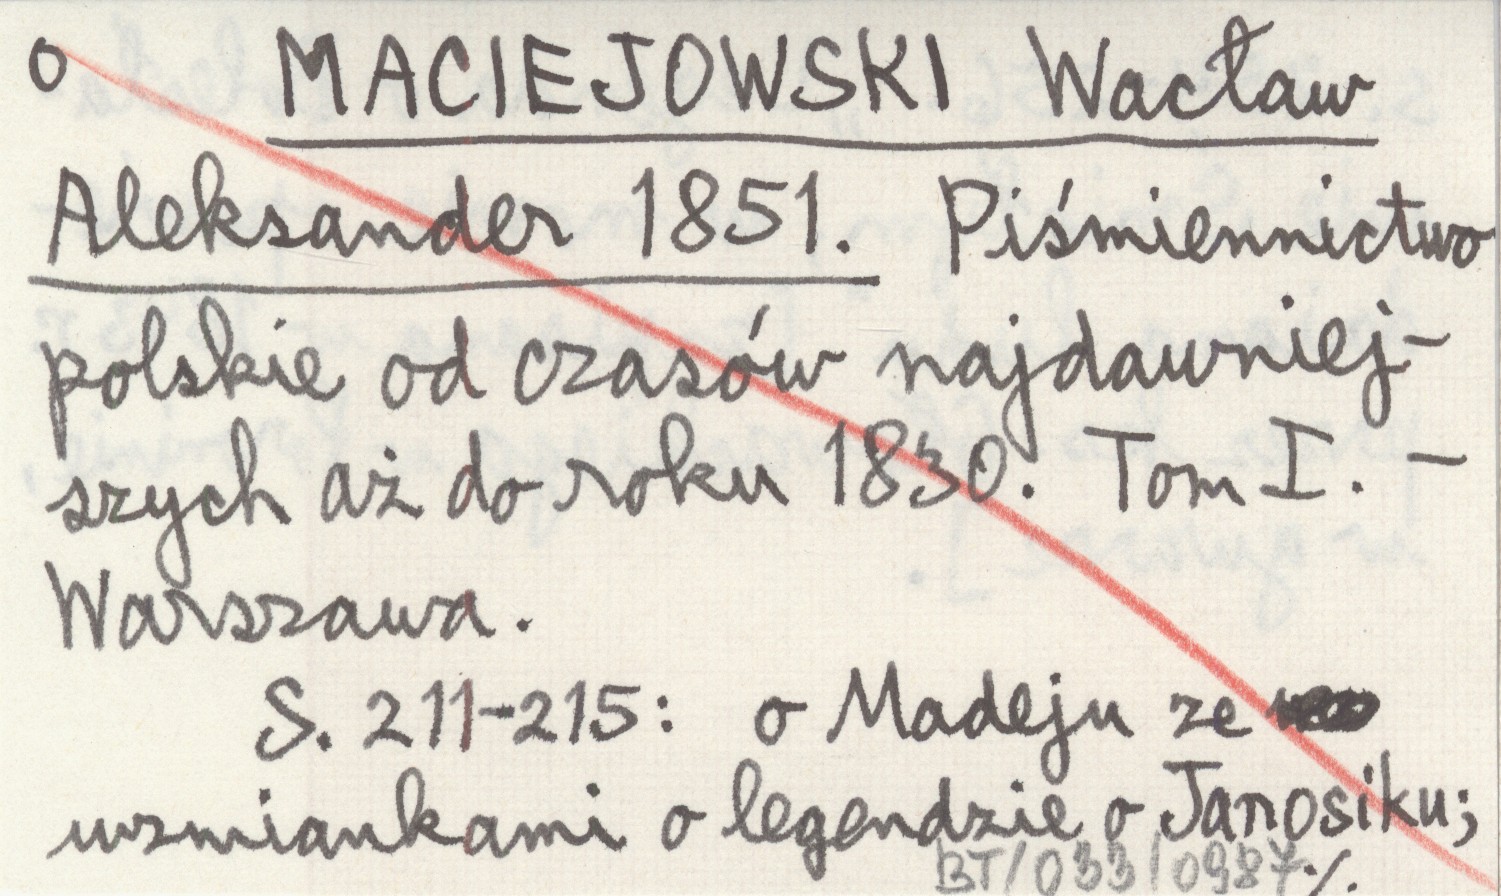 o MACIEJOWSKI Wacław
Aleksander 1851. Piśmiennictwo
polskie od czasów najdawniej-
szych aż do roku 1830. Tom I. -
Warszawa.
S. 211-215: o Madeju ze
wzmiankami o legendzie o Janosiku;
BT/033/0987 ./.